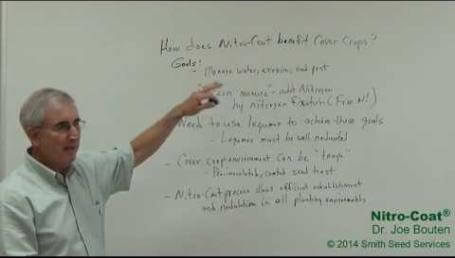 How does Nitro-Coat benefit Cover Crops?
Goals:
- Manage water, erosion, and pest
"Green manure" - add Nitrogen
by nitrogen fixation (Free N!)
Need to use legumes to achieve these goals
- Legumes must be well nodulated
- Cover crop environment can be "tough"
- Preinoculated, coated seed best
- Nitro-Coat process allows efficient establishment
and nodulation in all planting environments
Nitro-Coat®
Dr. Joe Bouten
© 2014 Smith Seed Services